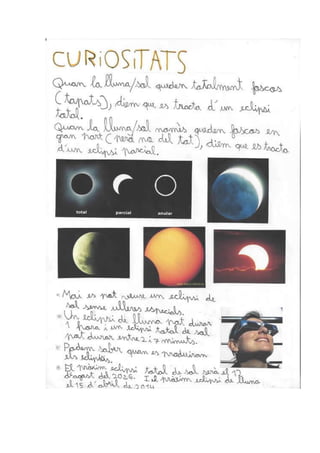 CURIOSITATS
Quan la lluna/sol queden totalment foscos
(tapats), diem que es tracta d'un eclipsi
total.
Quan la lluna/sol només queden foscos en
gran part (però no del tot), diem que es tracta
d'un eclipsi parcial.
total parcial anular
* Mai es pot veure un eclipsi de
sol sense ulleres especials.
* Un eclipsi de lluna pot durar
1 hora i un eclipsi total de sol
pot durar entre 2 i 7 minuts.
* Podem saber quan es produiran
els eclipsis.
* El pròxim eclipsi total de sol serà el 12
d'agost del 2026. I el pròxim eclipsi de lluna
el 15 d'abril de 2014